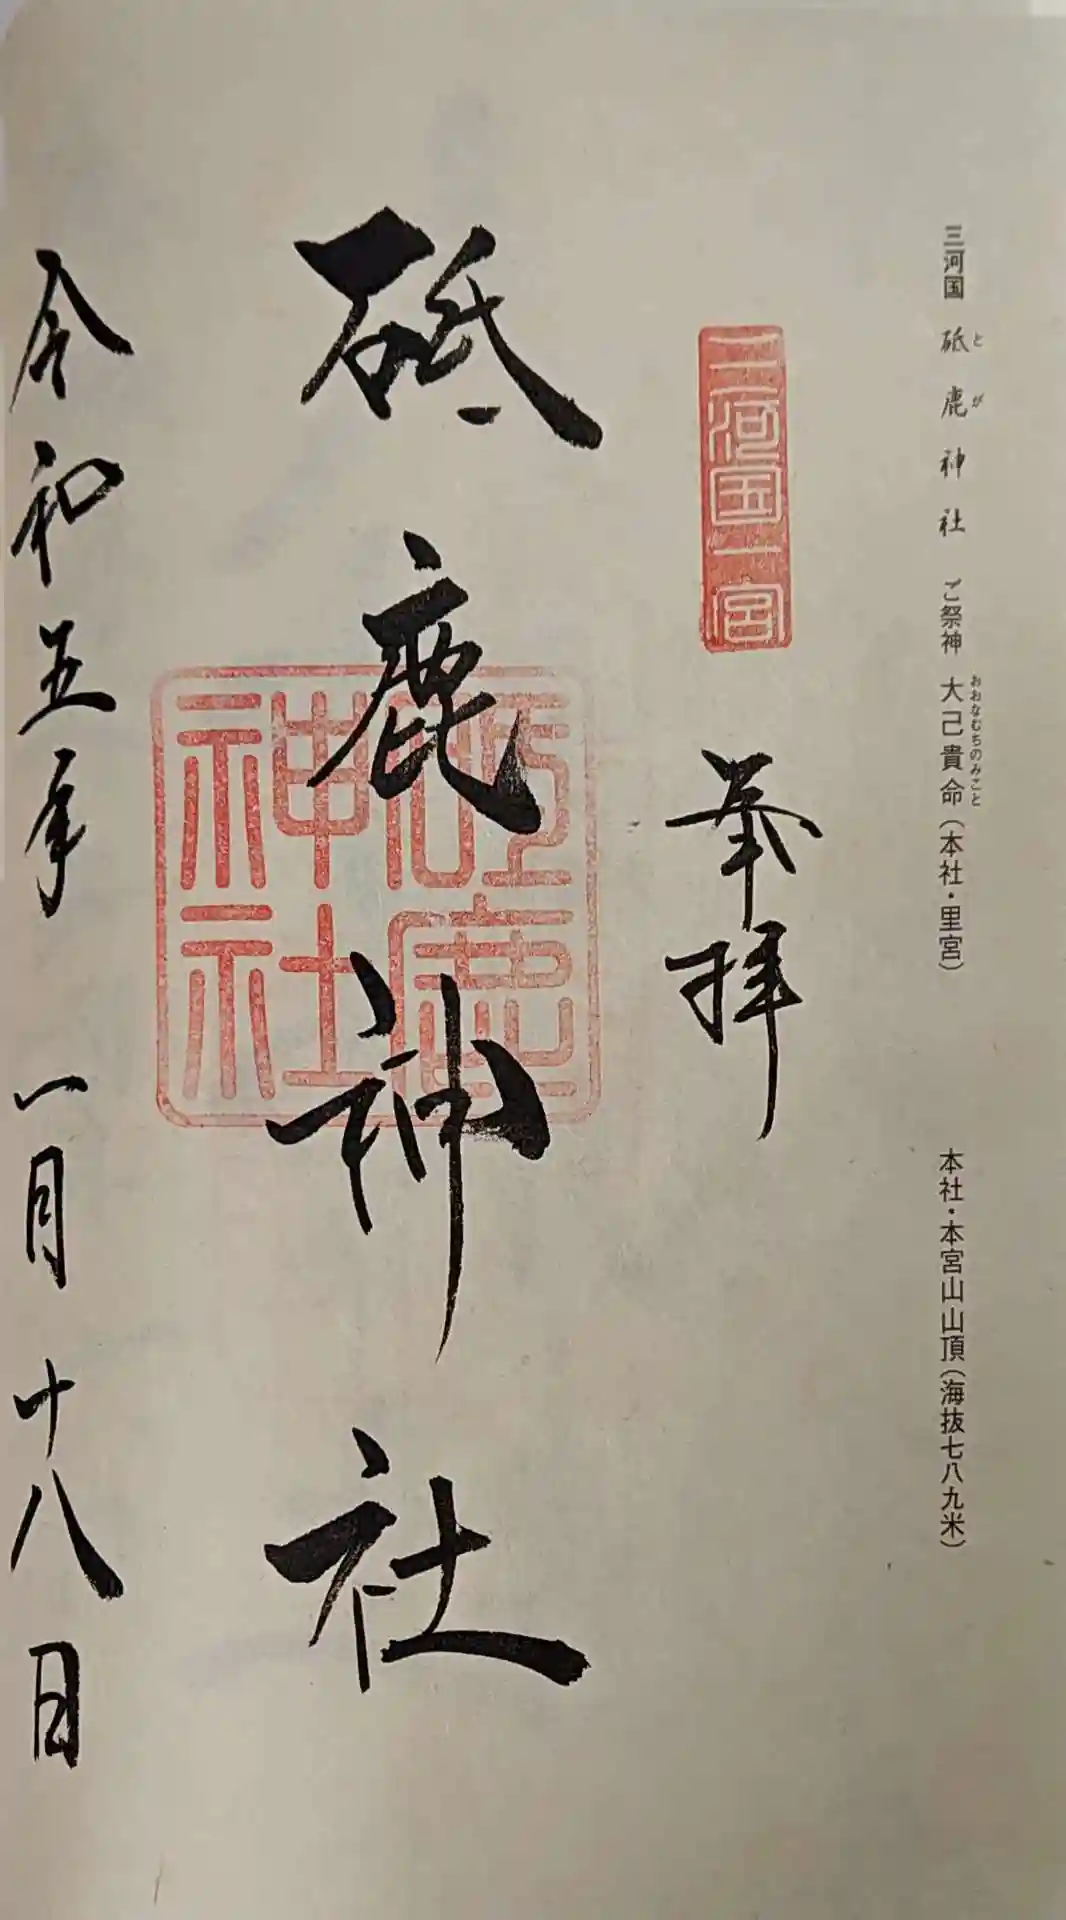 三河国 砥鹿神社 ご祭神 大己貴命（本社・里宮） 本社・本宮山山頂（海抜七八九米）
とが
おおなむちのみこと
三河国一宮
奉拝
砥鹿神社
砥鹿神社
令和五年一月十八日